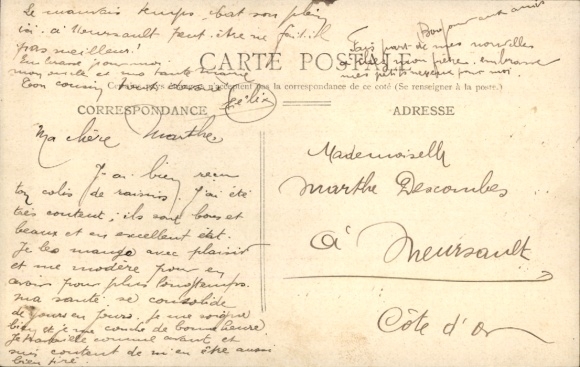 Le mauvais temps bat son plein
ici. à Meursault peut être ne fait-il
pas meilleur!
Embrasse pour moi
mon oncle et ma tante Marie
Ton cousin
Félix
Bonjour aux amis
Fais part de mes nouvelles
à chez mon frère. embrasse
mes petits neveux pour moi.
CARTE POSTALE
la correspondance de ce coté (Se renseigner à la poste.)
CORRESPONDANCE
ADRESSE
Ma chère Marthe
J'ai bien reçu
ton colis de raisins. J'ai été
très content, ils sont bons et
beaux et en excellent état.
Je les mange avec plaisir
et me modère pour en
avoir pour plus longtemps.
ma santé se consolide
de jours en jours. Je me soigne
bien et je me couche de bonne heure
Je travaille comme avant et
suis content de m'en être aussi
bien tiré.
Mademoiselle
Marthe Descombes
à Meursault
Côte d'Or